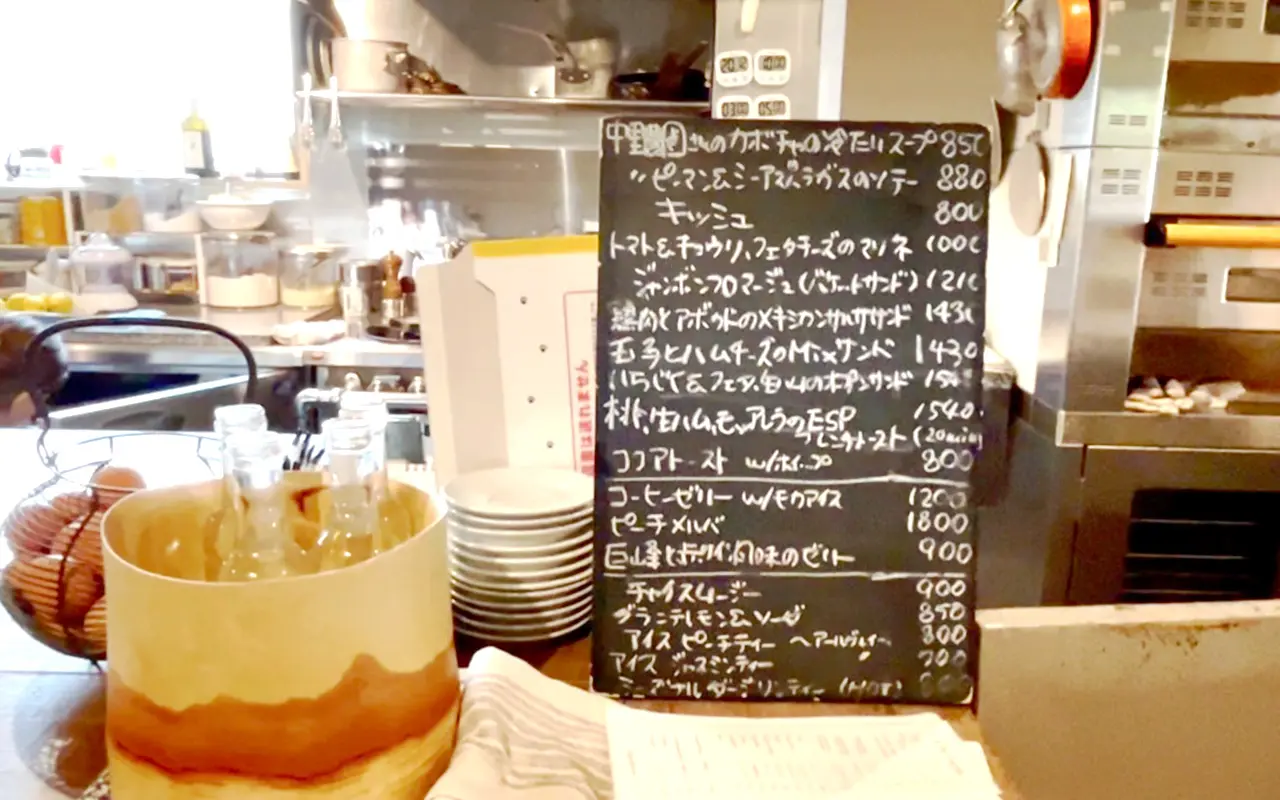 さんのカボチャの冷たいスープ 850
〃 ピーマン&シーアスパラガスのソテー 880
キッシュ 800
トマト&キュウリ、フェタチーズのマリネ 1000
ジャンボンフロマージュ(バケットサンド) 121
鶏肉とアボカドのメキシカンサルササンド 143
玉子とハムチーズのMixサンド 1430
いちじく&フェタ、のオープンサンド
桃、生ハム、モッツァレラのESP 1540.
フレンチトースト (20min)
ココアトースト w/ホイップ 800
コーヒーゼリー w/モカアイス 1200
ピーチメルバ 1800
巨峰と赤ワイン風味のゼリー 900
チャイスムージー 900
グラニテレモン&ソーダ 850
アイス ピーチティー 〜アールグレイ〜 800
アイス ジャスミンティー 700
ダージリンティー (HOT)
20:12
10:00
03:00
05:00
は流れません